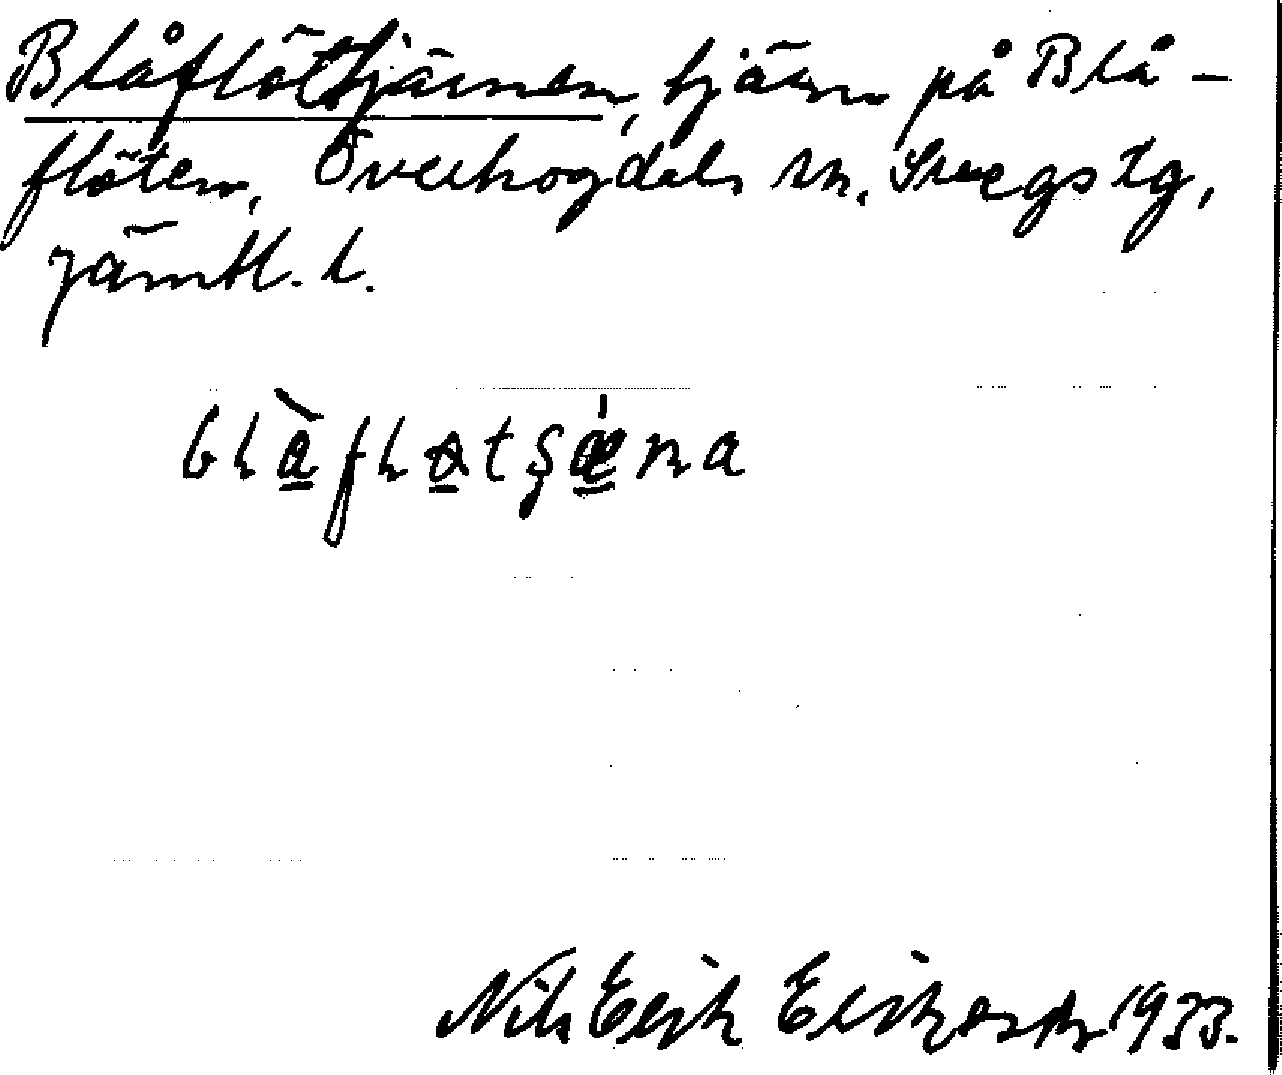 Blåflöttjärnen, tjärn på Blå-
flöten, Överhogdals sn, Svegs tg,
Jämtl. l.
blåfløtʂæ̀na
Nils Erik Eriksson 1933.